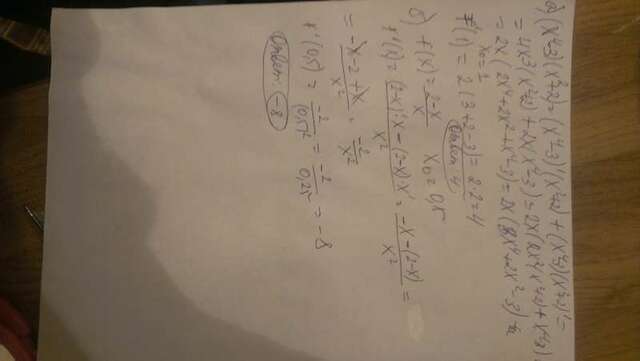 а) (x⁴-3)(x²+2) = (x⁴-3)'(x²+2) + (x⁴-3)(x²+2)' =
= 4x³(x²+2) + 2x(x⁴-3) = 2x(2x²(x²+2) + x⁴-3)
= 2x(2x⁴+2x²+x⁴-3) = 2x(3x⁴+2x²-3)
x₀=1
f'(1) = 2(3+2-3) = 2·2=4
Ответ: 4
б) f(x) = (2-x)/x x₀ = 0,5
f'(x) = ((2-x)'x - (2-x)x')/x² = (-x-(2-x))/x² =
= (-x-2+x)/x² = -2/x²
f'(0,5) = -2/(0,5)² = -2/0,25 = -8
Ответ: -8